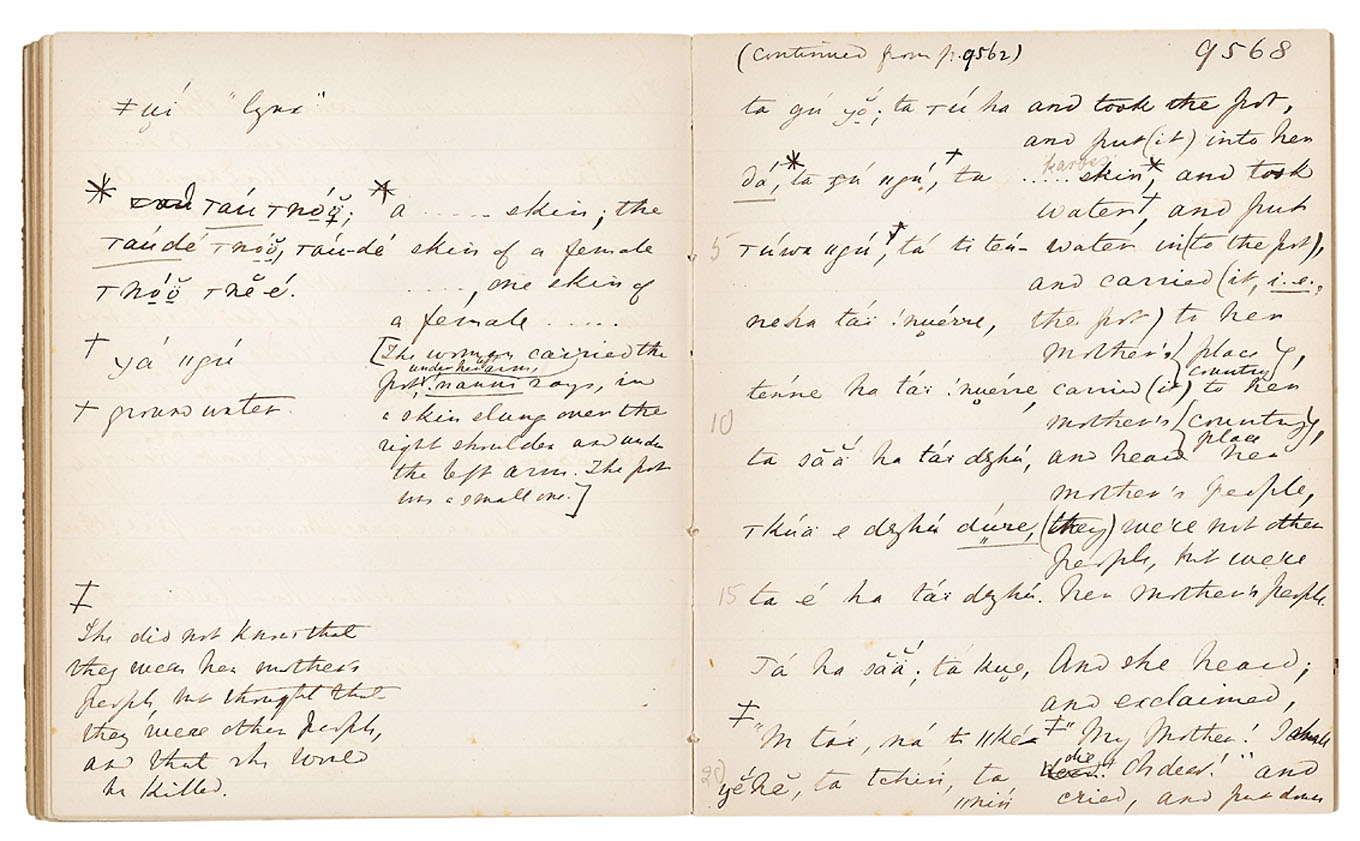 ǂyí "lynx"
* Ͳaú Ͳnó̱ŏ̱; * a ..... skin; the
Ͳaúdé Ͳnó̱ŏ̱, Ͳaú-dé skin of a female
Ͳnó̱ŏ̱ Ͳnĕ é. ....., one skin of
a female .....
† yá ǁgú
[The woman carried the
pot, under her arm, !nanni says, in
† ground water.
a skin slung over the
right shoulder and under
the left arm. The pot
was a small one.]
‡
She did not know that
they were her mother's
people, but thought that
they were other people,
and that she would
be killed.
(continued from p. 9562) 9568
ta gú yŏ́; ta Ͳú ha and took the pot,
and put (it) into her
dá,* ta gú ǁgú,† ta kaross ..... skin,* and took
water,† and put
5 Ͳúwa ǁgú,† tá ti teń- water in (to the pot),
and carried (it, i.e.,
neha táï !nuérre, the pot) to her
mother's {place country},
teńne ha táï !nuérre, carried (it) to her
10 mother's {country place},
ta sā́ă ha táï dzhú, and heard her
mother's people,
Ͳkúä e dzhú dúüre, (they) were not other
people, but were
15 ta é ha táï dzhú. her mother's people.
Tá ha sā́ă; tá kue, And she heard;
and exclaimed,
‡ "M táï, ná ti ǁké- ‡ "My Mother! I shall
20 yĕ́hĕ, ta tchíń, ta die! Oh dear!" and
ǁniń cried, and put down